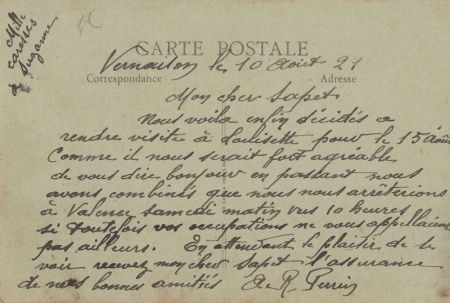 Mille
caresses
à Suzanne
CARTE POSTALE
Vernaison le 10 Août 21
Correspondance
Adresse
Mon cher Sapet
Nous voila enfin décidés a
rendre visite à Louisette pour le 15 août
Comme il nous serait fort agréable
de vous dire bonjour en passant nous
avons combinés que nous nous arrêterions
à Valence samedi matin vers 10 heures
si toutefois vos occupations ne vous appellaient
pas ailleurs. En attendant le plaisir de te
voir recevez mon cher Sapet l'assurance
de nos bonnes amitiés
R Perrin